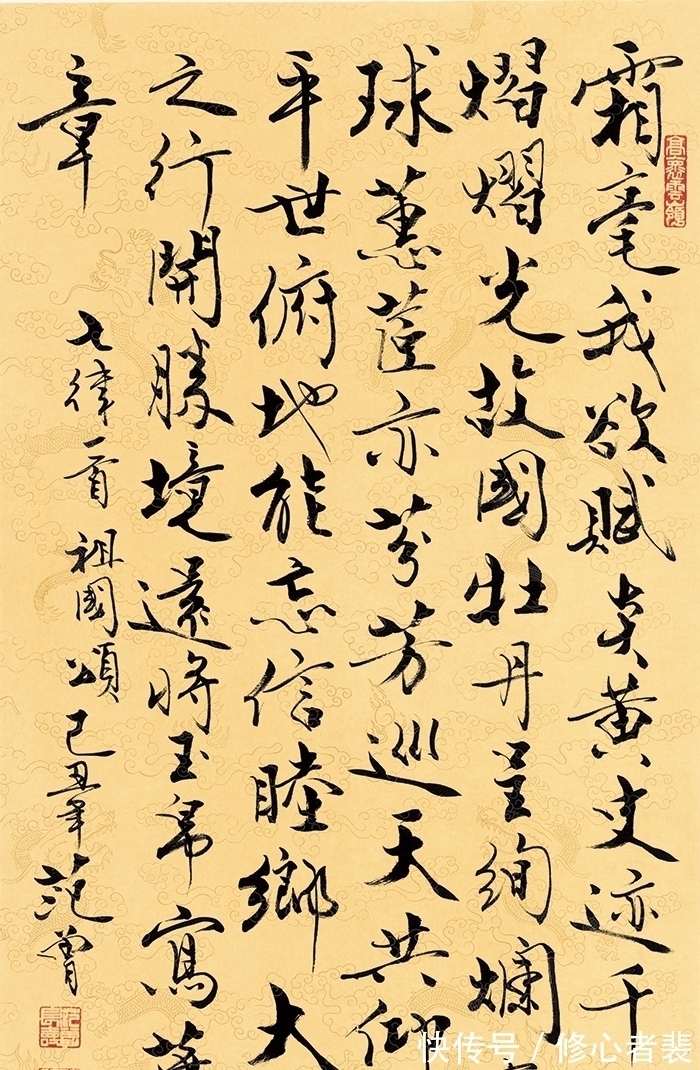 霜毫我欲賦炎黄史迹千
熠熠光故國牡丹呈絢爛
球蕙茝亦芬芳巡天共仰
平世俯地能忘信睦鄉大
之行開勝境還將玉帛寫
章
七律一首祖國頌己丑年范曾
快传号 / 修心者裴